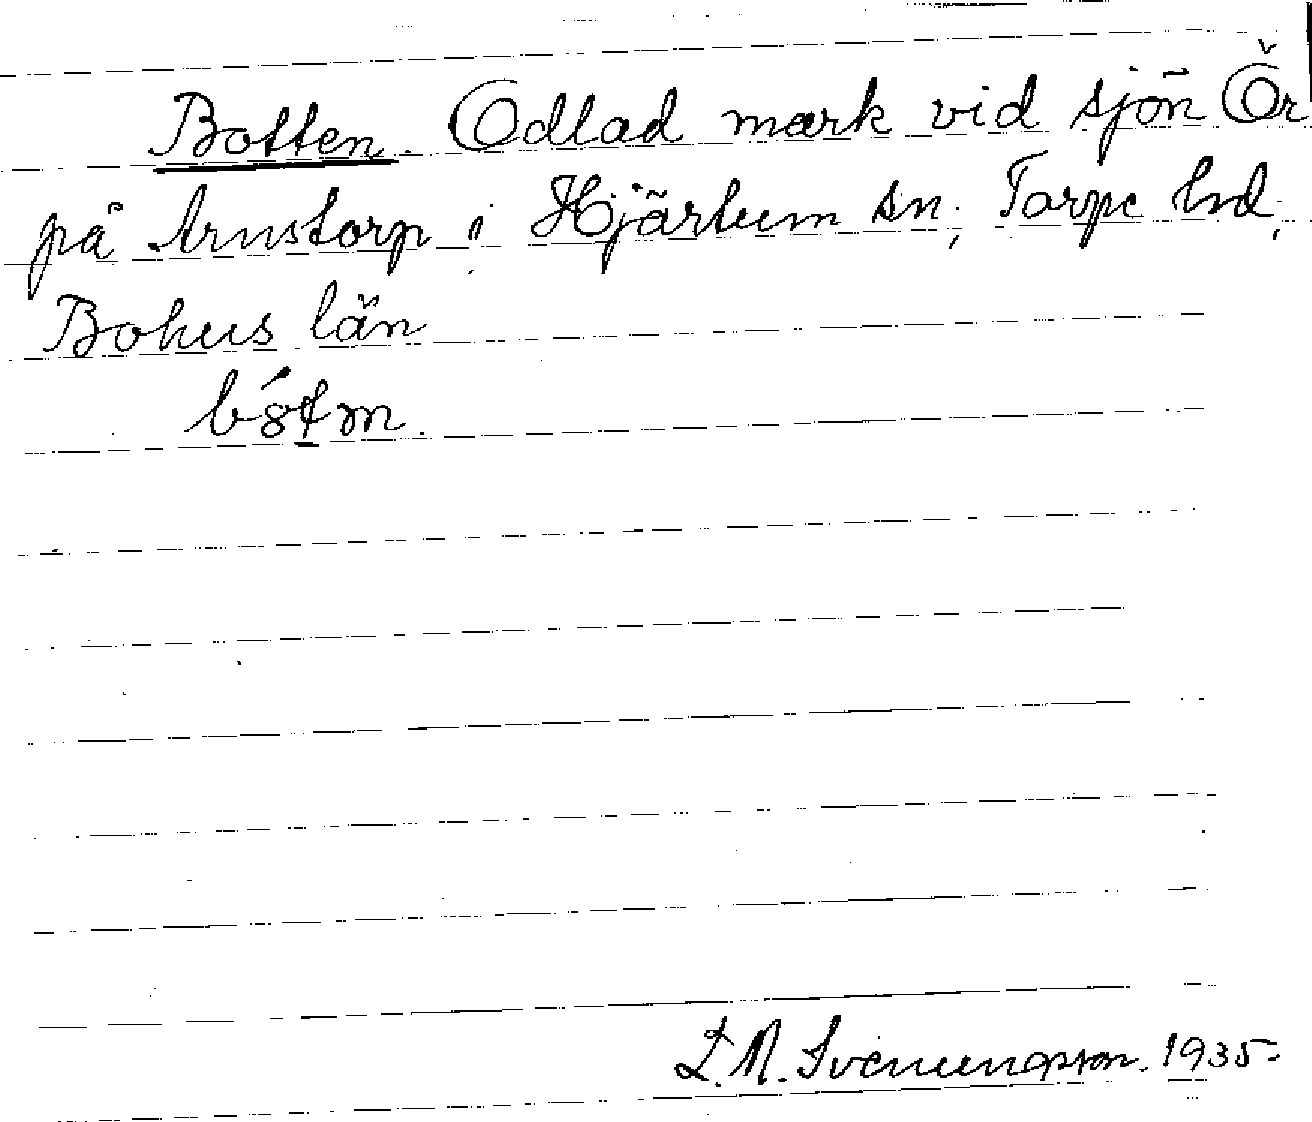 Botten. Odlad mark vid sjön Ör
på Arnstorp i Hjärtum sn, Torpe hd,
Bohus län
N. Svenungsson. 1935.